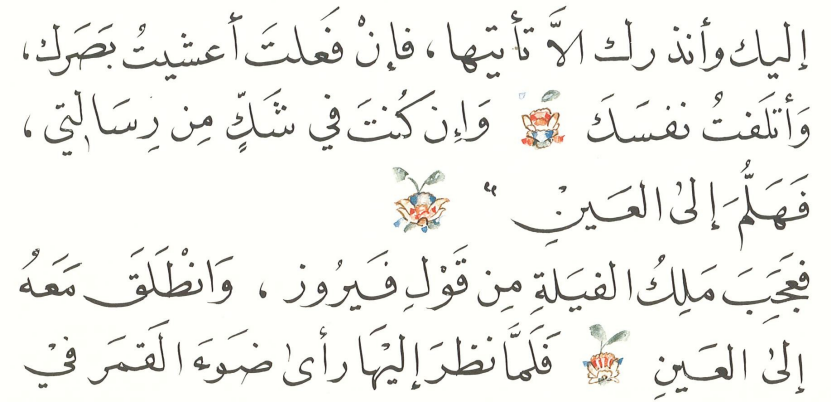 إليك وأنذرك الاَّ تأتيها ، فإنْ فَعلتَ أعشيتُ بَصَرك،
وَأتلَفتُ نفسَكَ وَإِن كُنتَ في شَكٍّ مِن رِسَالتي ،
فَهَلُمَّ إلىٰ العَيْنِ "
فعَجَبَ مَلِكُ الفيَلةِ مِن قَوْلِ فَيرُوز ، وَانْطَلَقَ مَعَهُ
إلىٰ العَينِ فَلَمَّا نظرَ إليْهَا رأىٰ ضَوءَ القمَر فيْ